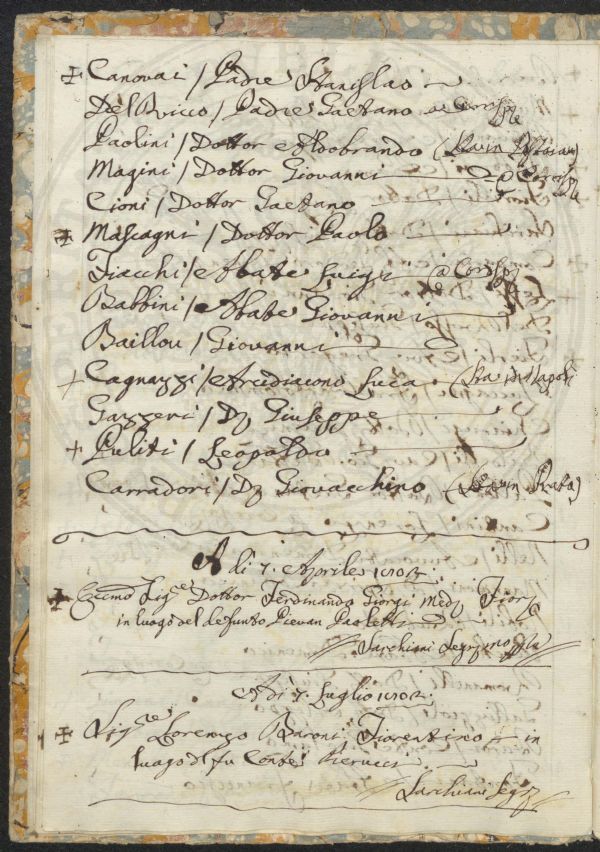 ✠ Canovai / Padre Stanislao
Del Ricco / Padre Gaetano
Paolini / Dottor Aldobrando (
Magini / Dottor Giovanni
Cioni / Dottor Gaetano
✠ Mascagni / Dottor Paolo
Fiacchi / Abate Luigi
Babbini / Abate Giovanni
Baillou / Giovanni
+ Cagnazzi / Arcidiacono Luca
Gazzeri / Dr Giuseppe
+ Puliti / Leopoldo
Carradori / Dr Giovacchino ( in Prato)
A di 7. Aprile
✠ Dottor Ferdinando Giorgi Med
in luogo del defunto Pievan Paoletti
Sarchiani Segr
A di 7. Luglio
✠ Sigre Lorenzo Baroni Fiorentino in
luogo del fu Conte Pierucci
Sarchiani Segr